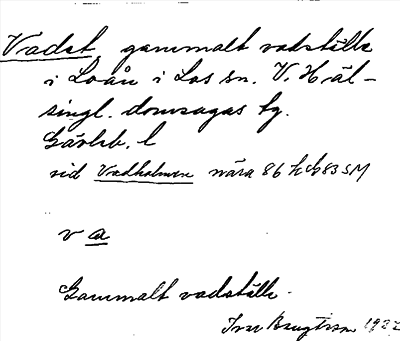 Vadst, gammalt vadställe
i Loån i Los sn. V. Häl-
singl. domsagas tg.
Gävleb. l
vid Vadholmen nära 86
v a
Gammalt vadställe.
Ivar 1927